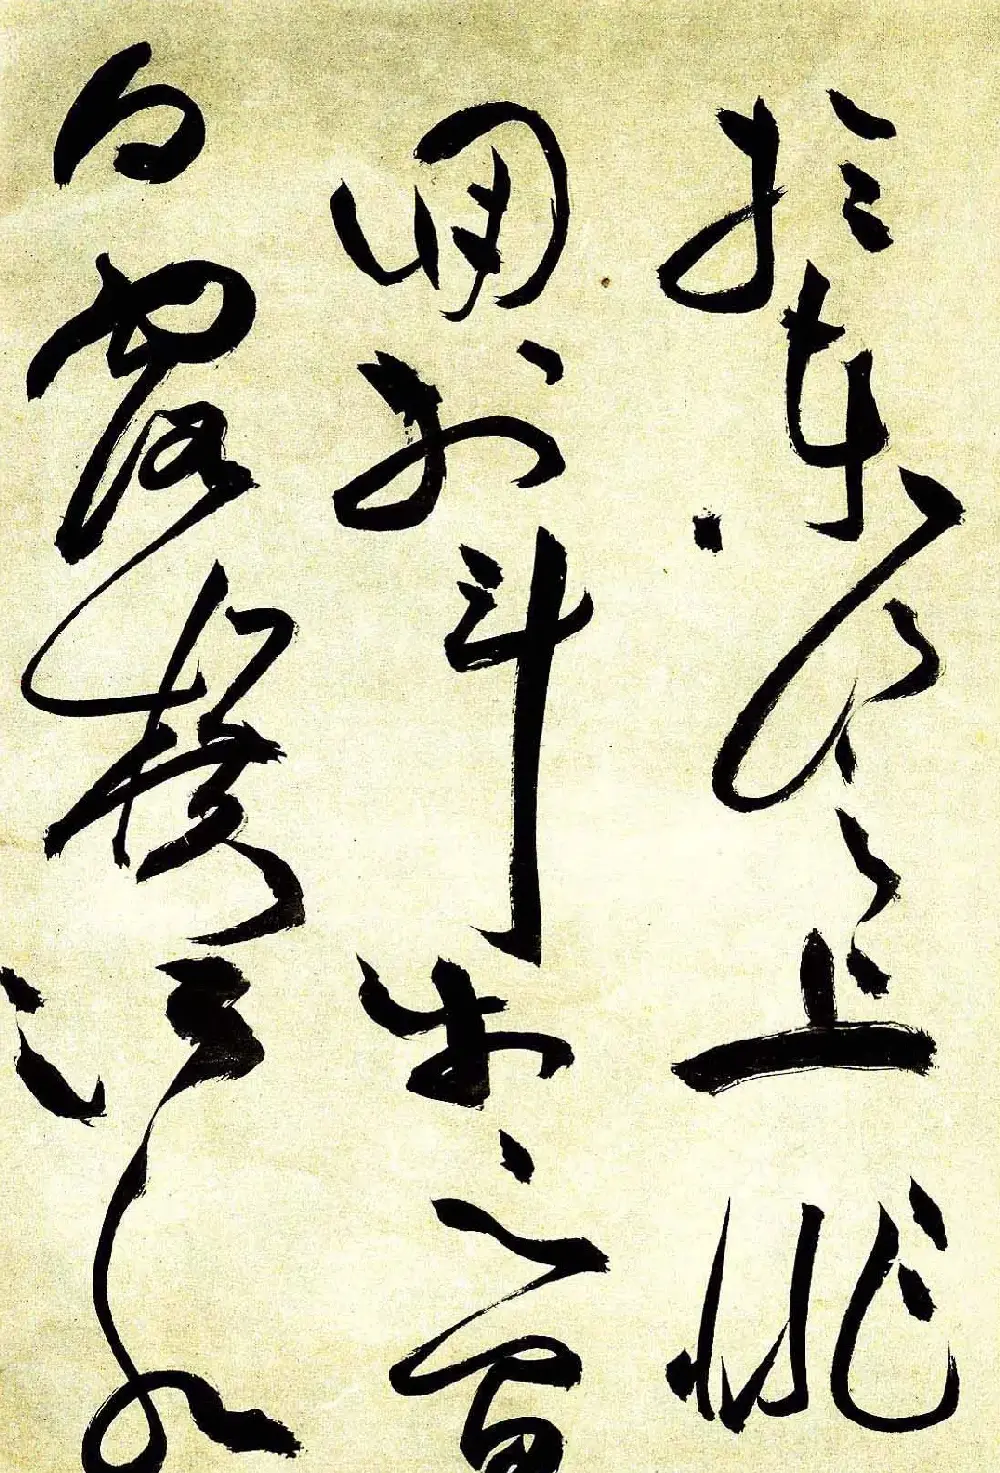 於東山之上徘
徊於斗牛之間
白露橫江水